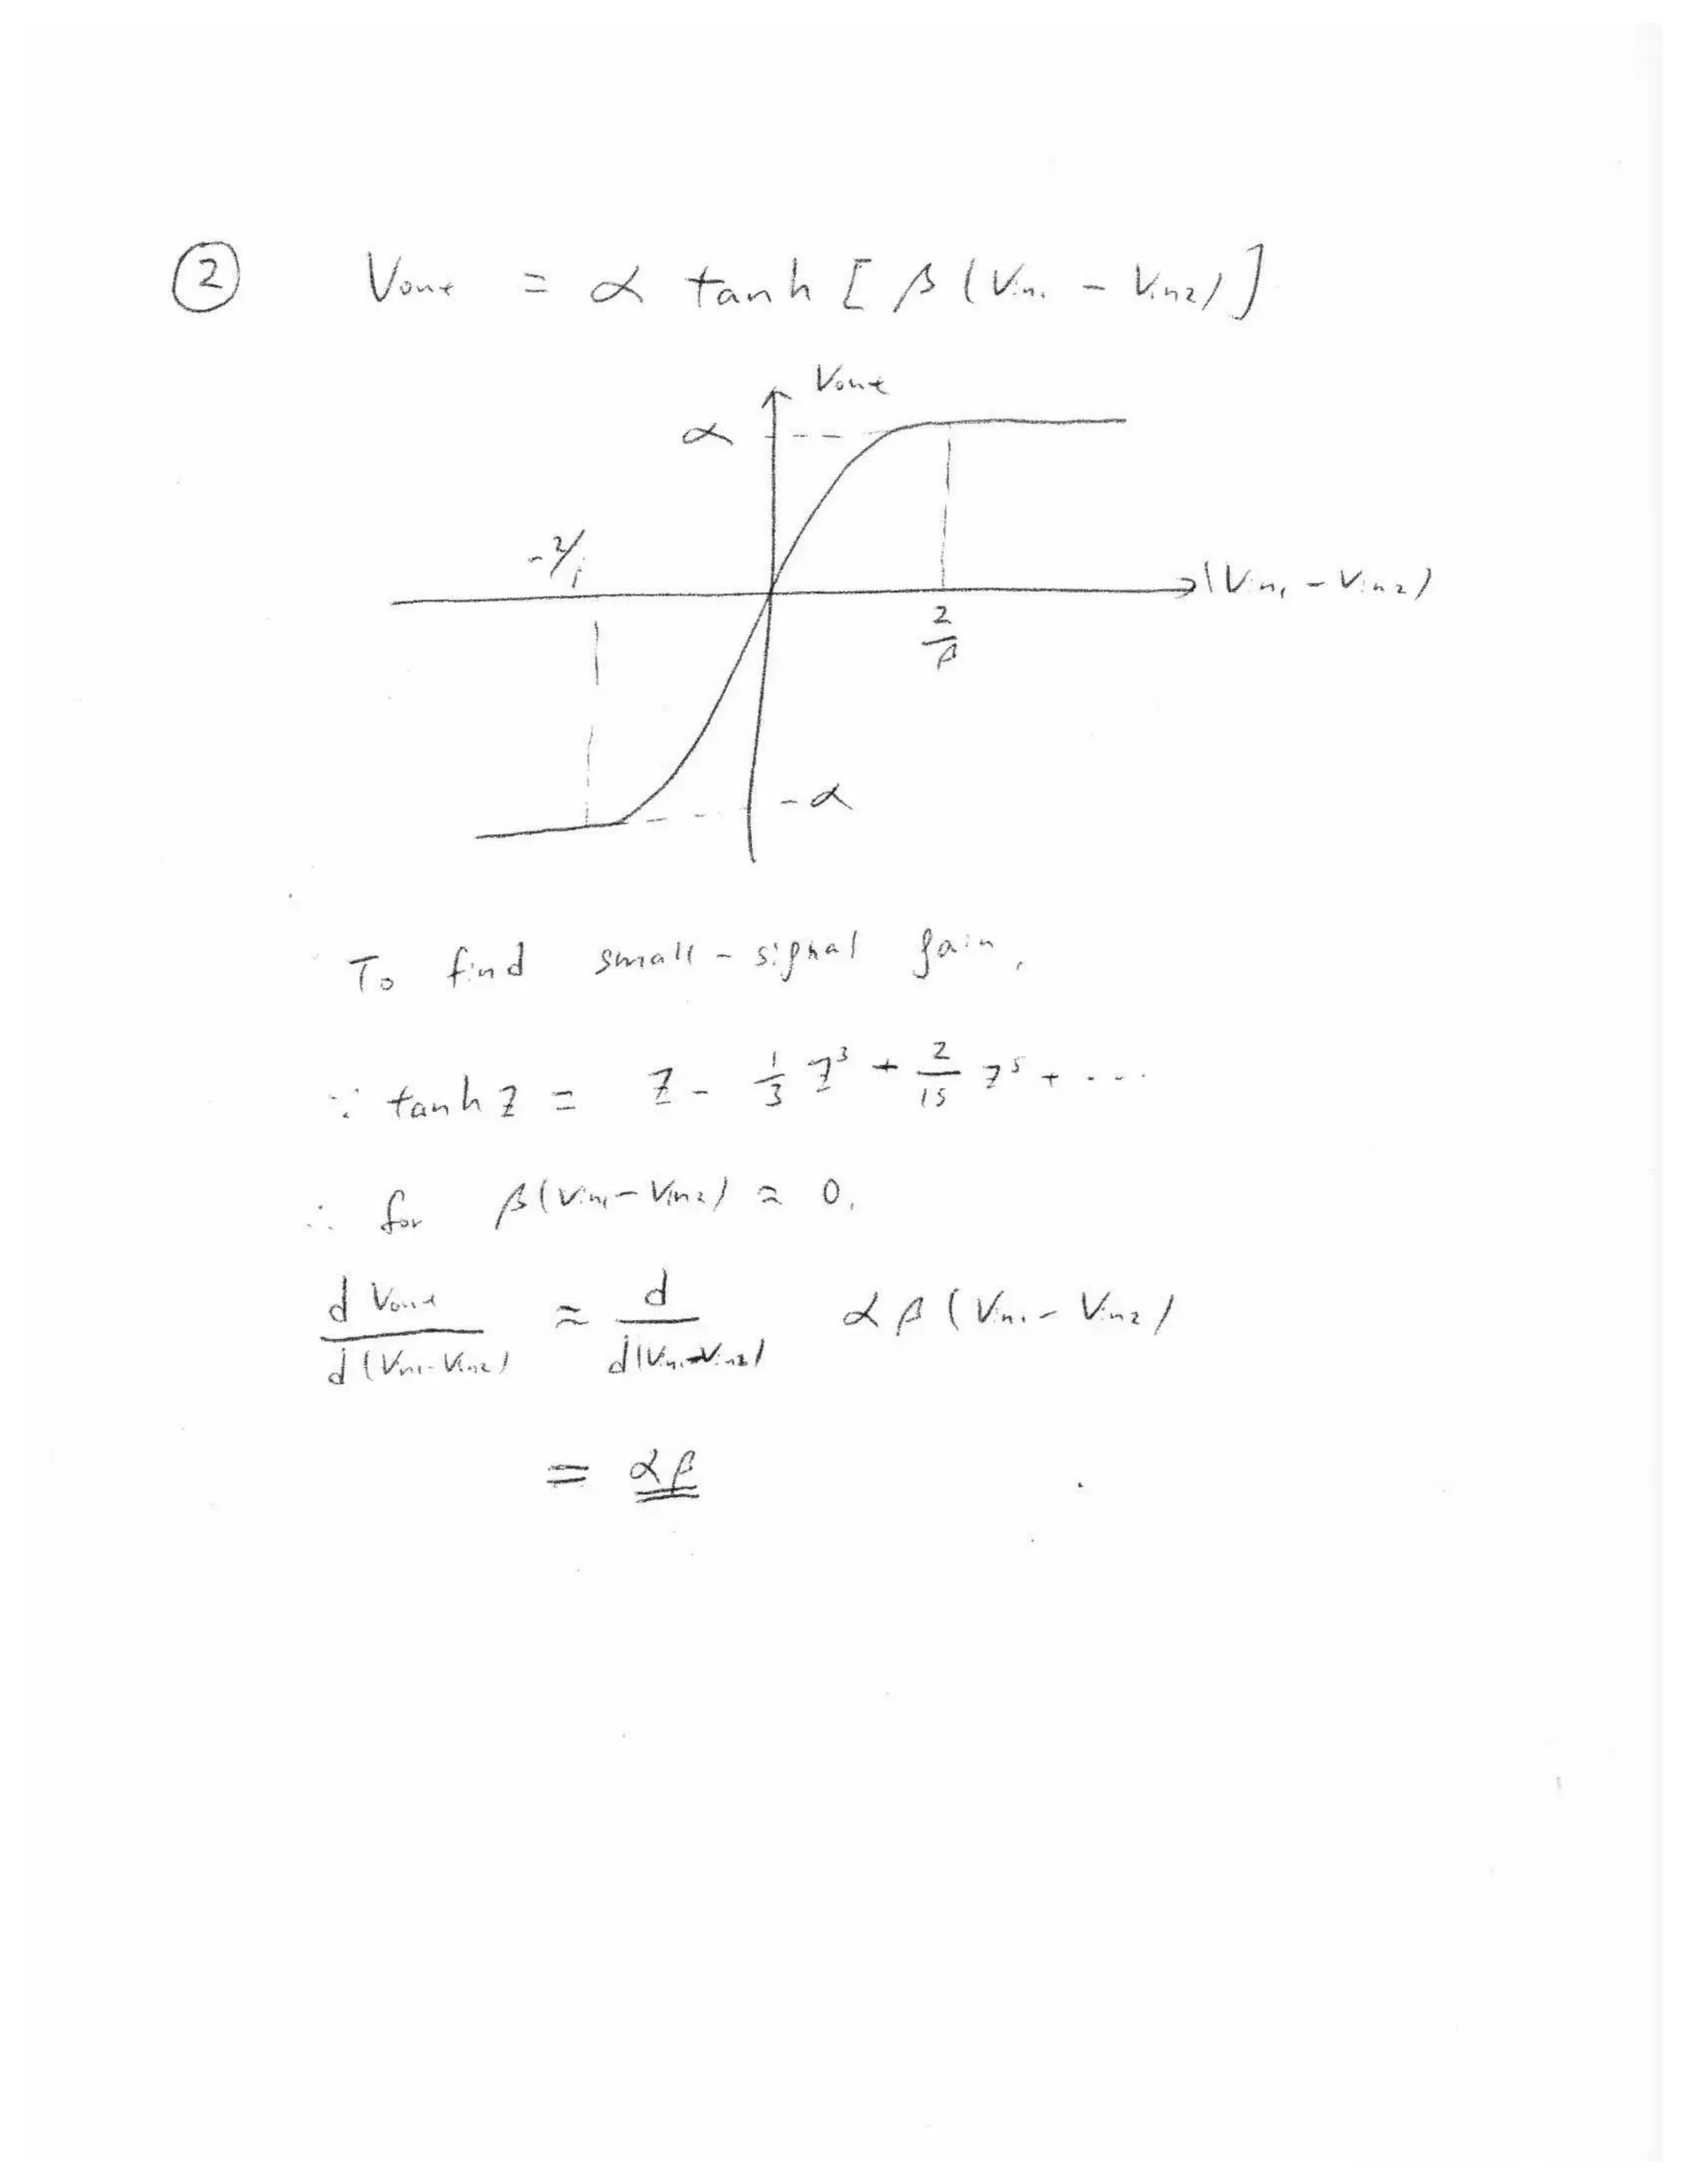 ② Vout = α tanh [ β ( Vin1 - Vin2 ) ]
Vout
α
-2/
→ ( Vin1 - Vin2 )
2/β
-α
To find small-signal gain,
∵ tanh z = z - 1/3 z³ + 2/15 z⁵ + ...
∴ for β ( Vin1 - Vin2 ) ≈ 0,
d Vout / d ( Vin1 - Vin2 ) ≈ d / d ( Vin1 - Vin2 ) α β ( Vin1 - Vin2 )
= αβ